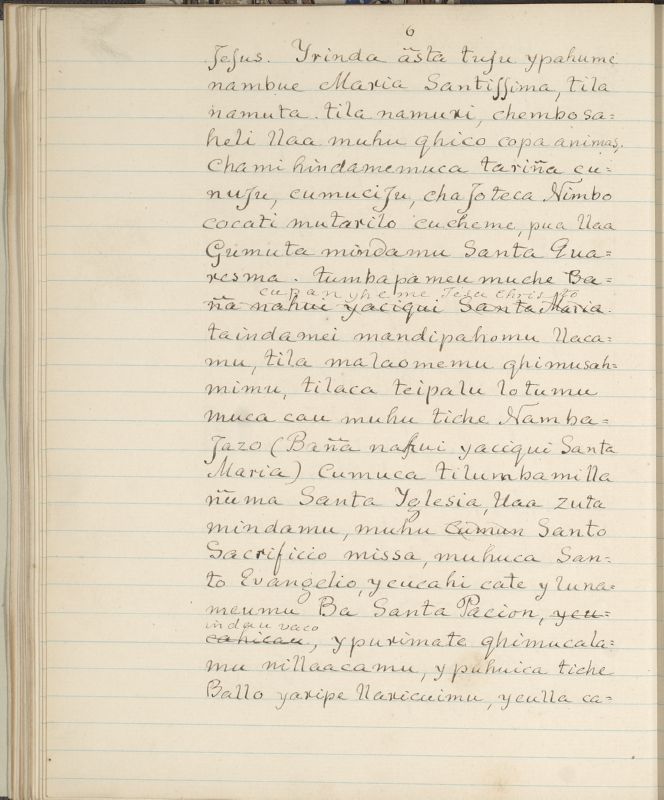 6
Jesus. Yrinda ãsta tuju ypahume
nambue Maria Santissima, tila
namuta. tila namuri, chembo sa=
heli Uaa muhu qhico copa animas,
chami hindamemuca tariña cu=
nuju, cumuciju, chajoteca Nimbo
cocati mutarilo cucheme, pua Uaa
Gumuta mindamu Santa Qua=
resma. tumbapameu muche Ba=
cupanyheme Jesu Christo
ña nahui yaciqui Santa Maria.
taindamei mandipahomu Uaca=
mu, tila malaomemu qhimusah=
mimu, tilaca teipalu lotumu
muca cau muhu tiche Namba=
Jazo (Baña nahui yaciqui Santa
Maria) Cumuca tilumbamilla
ñuma Santa Yglesia, Uaa zuta
mindamu, muhu cumun Santo
Sacrificio missa, muhuca San=
to Evangelio, ycucahi cate y luna=
meumu Ba Santa Pacion, ycu=
indau vaco
cahicau, ypurimate qhimucala=
mu nillaacamu, y puhuica tiche
Ballo yaripe Uaricuimu, yculla ca=